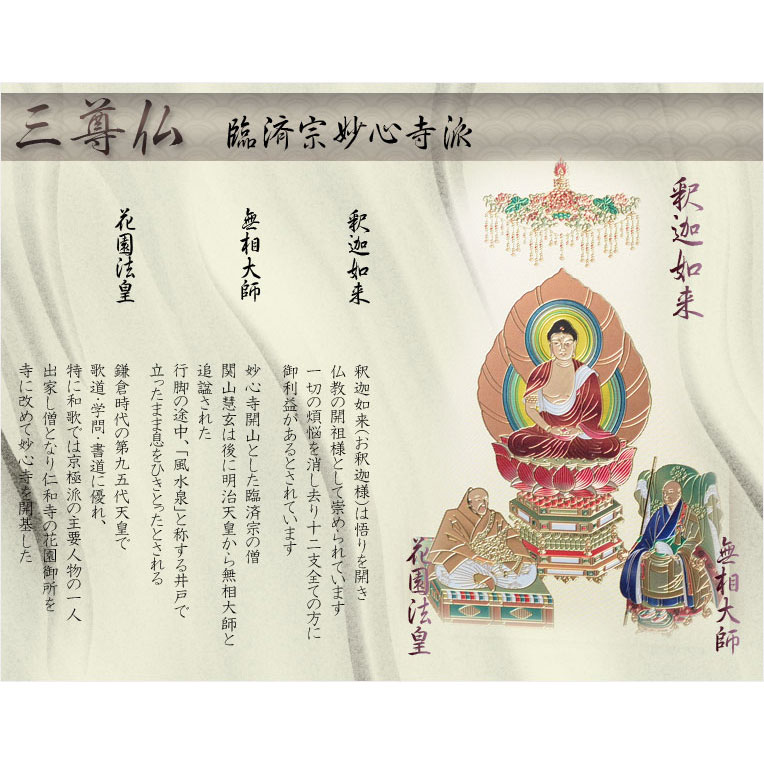 三尊仏 臨済宗妙心寺派
釈迦如来
釈迦如来
釈迦如来(お釈迦様)は悟りを開き
仏教の開祖様として崇められています
一切の煩悩を消し去り十二支全ての方に
御利益があるとされています
無相大師
妙心寺開山とした臨済宗の僧
関山慧玄は後に明治天皇から無相大師と
追諡された
行脚の途中、「風水泉」と称する井戸で
立ったまま息をひきとったとされる
花園法皇
鎌倉時代の第九五代天皇で
歌道・学問・書道に優れ、
特に和歌では京極派の主要人物の一人
出家し僧となり仁和寺の花園御所を
寺に改めて妙心寺を開基した
無相大師
花園法皇